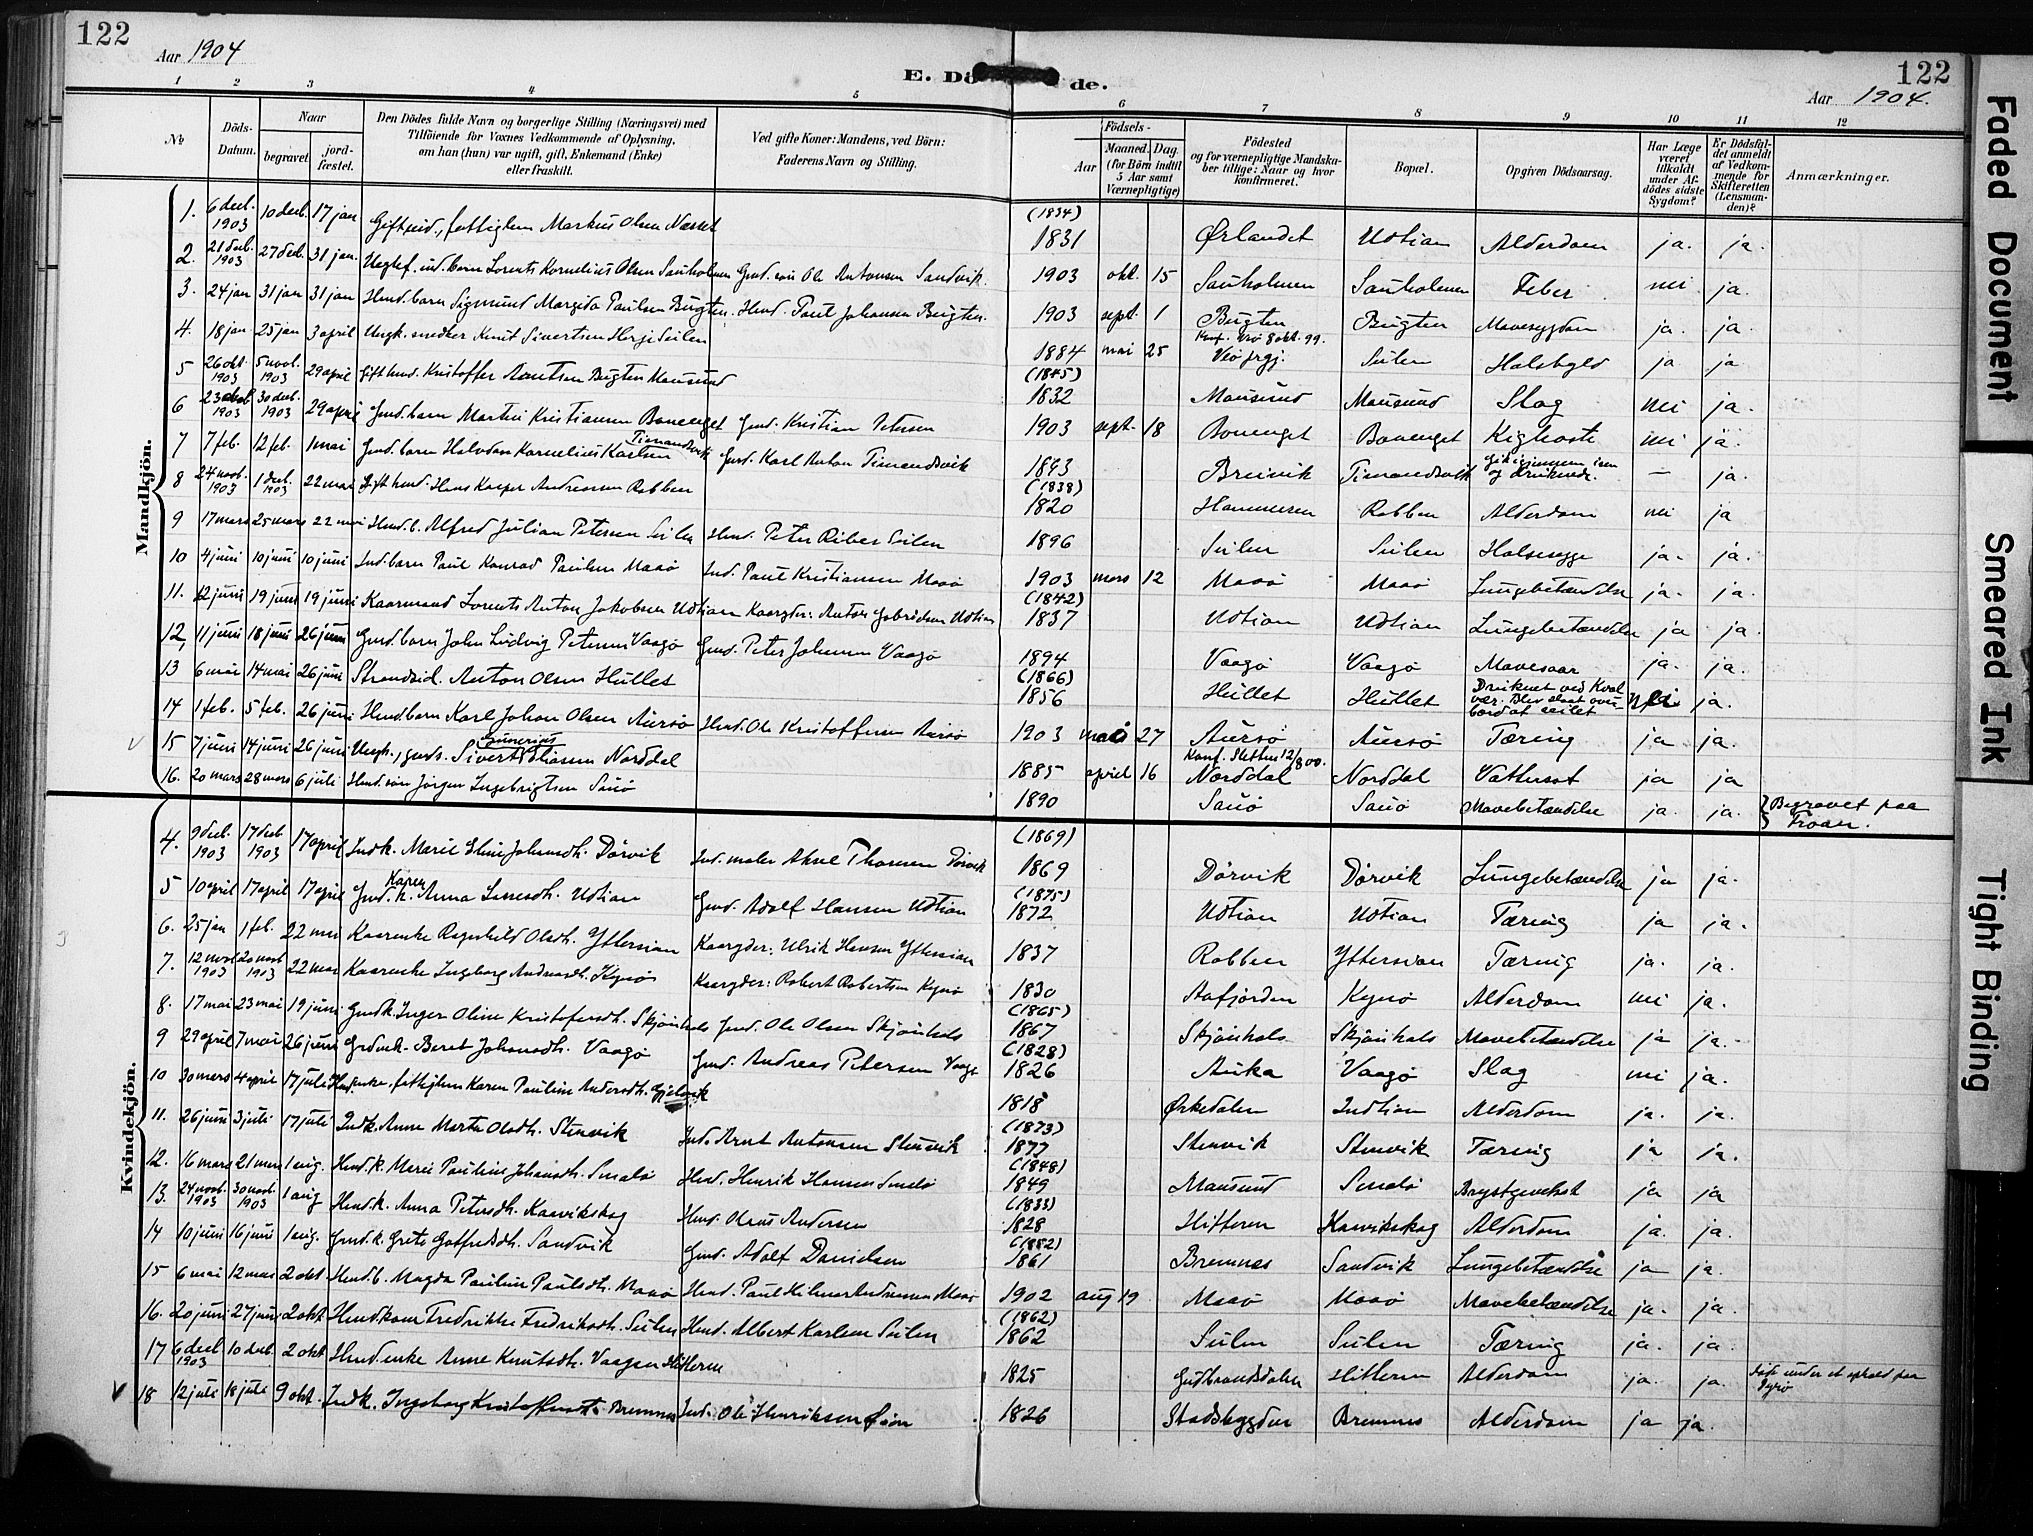 122
Aar 1904
E. Dö de.
122
Aar 1904.
1 2 3 4 5 6 7 8 9 10 11 12
No
Döds-Datum.
Naar
begravet.
jord-fæstet.
Den Dödes fulde Navn og borgerlige Stilling (Næringsvei) med
Tilföiende for Voxnes Vedkommende af Oplysning,
om han (hun) var ugift, gift, Enkemand (Enke)
eller fraskilt.
Ved gifte Koner: Mandens, ved Börn:
Faderens Navn og Stilling.
Födsels-
Aar
Maaned. Dag.
(for Börn indtil
5 Aar samt
Værnepligtige)
Födested
og for værnepligtige Mandska-
ber tillige: Naar og hvor
konfirmeret.
Bopæl.
Opgiven Dödsaarsag.
Har Læge
været
tilkaldt
under Af-
dödes sidste
Sygdom?
Er Dödsfal-
det anmeldt
af Vedkom-
mende for
Skifteretten
(Lensman-
den)?
Anmærkninger.
Mandkjön.
1. 6 decb. 1903 10 decb. 17 jan Markus Olsen Næsset (1834) 1831 Ørlandet Udtian Alderdom ja. ja.
2. 21 decb. 1903 27 decb. 31 jan. Lorents Kornelius Olsen Sauholmen Ole Antonsen Sandvik. 1903 okt. 15 Sauholmen Sauholmen Feber nei ja.
3. 24 jan 31 jan 31 jan Paulsen Bugten. Paul Johansen Bugten. 1903 sept. 1 Bugten Bugten Mavesygdom ja. ja.
4. 18 jan 25 jan 3 april Ungk. snedker Knut Sivertsen Seilen 1884 mai 25 Konf. Veö 8 okt. 99. Veö prgj. Seilen Halsbyld ja ja
5 26 okt 1903 5 novb. 1903 29 april Gift Kristoffer Bugten Mausund (1845) 1832 Mausund Mausund Slag nei ja.
6 1903 30 decb. 1903 29 april Gmd. barn Martin Kristiansen Bonenget Gmd. Kristian Petersen 1903 sept. 18 Bonenget Bonenget Kighoste nei ja.
7 7 feb. 12 feb. 1 mai Gmd. barn Halvdan Kornelius Karlsen Timandsvik Gmd. Karl Anton Timandsvik 1893 Breivik Timandsvik Gik gjennem isen og druknede. — ja.
8 24 novb. 1903 1 decb. 1903 22 mai Gift Hans Kasper Andreassen Rabben (1838) 1820 Hammeren Rabben Alderdom nei ja
9 17 mars 25 mars 22 mai Alfred Julian Petersen Seilen Peter Riber Seilen 1896 Seilen Seilen Halsesyge ja. ja.
10 4 juni 10 juni 10 juni Ind. barn Paul Konrad Paulsen Maaö Ind. Paul Kristiansen Maaö 1903 mars 12 Maaö Maaö Lungebetændelse ja. ja.
11. 12 juni 19 juni 19 juni Kaarmand Lorents Anton Jakobsen Udtian Kaargdr. Anton Gabrielsen Udtian (1842) 1837 Udtian Udtian Lungebetændelse ja ja.
12, 11 juni 18 juni 26 juni Gmd. barn John Ludvig Petersen Vaagö Gmd. Peter Johansen Vaagö 1894 Vaagö Vaagö Mavesaar ja. ja.
13 6 mai 14 mai 26 juni Strandsid. Anton Olsen Hullet (1866) 1856 Hullet Hullet Druknet ved Kval vær. Blev slaat over bord af seilet nei ja.
14 1 feb. 5 feb. 26 juni Karl Johan Olsen Aursö Ole Kristoffersen Aursö 1903 27 Aursö Aursö Tæring ja ja.
15 7 juni 14 juni 26 juni Ungk., Sivert Gunerius Norddal 1885 april 16 Konf. Sletten 12/8 00. Norddal Norddal Vattersot ja ja
16. 20 mars 28 mars 6 juli Jörgen Ingebrigtsen Sauö 1890 Sauö Sauö Mavebetændelse ja. ja. Begravet paa Froan.
Kvindekjön.
4. 9 decb. 1903 17 decb. 1903 17 april Indk. Marie Johansdh. Dörvik Thomsen Dörvik (1869) 1869 Dörvik Dörvik Lungebetændelse ja ja.
5 10 april 17 april 17 april Gmd. k. Karen Anna Udtian Gmd. Adolf Hansen Udtian (1875) 1872 Udtian Udtian Tæring ja ja.
6. 25 jan 1 feb. 22 mai Kaarenke Ragnhild Olsdh. Yttersian Kaargdr: Ulrik Hansen Yttersian 1837 Rabben Yttersian Tæring ja. ja.
7. 12 novb 1903 20 novb 1903 22 mai Kaarenke Ingeborg Kyrö Kaargdr: Robert Robertsen Kyrö 1830 Aafjorden Kyrö Alderdom nei ja.
8. 17 mai 23 mai 19 juni Gmdk. Inger Oline Kristofersdh. Skjönhals Gmd. Ole Olsen Skjönhals (1865) 1867 Skjönhals Skjönhals Mavebetændelse ja ja.
9 29 april 7 mai 26 juni Beret Johansdh. Vaagö Gmd. Andreas Petersen Vaagö (1828) 1826 Auka Vaagö Slag nei ja.
10 30 mars 4 april 17 juli Karen Pauline Andersdh. Gjelsvik 1818 Ørkedalen Indtian Alderdom ja. ja.
11. 26 juni 3 juli 17 juli Indk. Anne Marta Olsdh. Stenvik Ind. Arnt Antonsen Stenvik (1873) 1877 Stenvik Stenvik Tæring ja ja.
12. 16 mars 21 mars 1 aug. Marie Pauline Johansdh. Smalö Henrik Hansen Smalö (1848) 1849 Mausund Smalö Brystsvekst ja ja
13. 24 novb. 1903 30 novb. 1903 1 aug Anna Petersdh. Kaavikskog Andersen (1833) 1828 Hitteren Kaavikskog Alderdom ja. ja.
14 10 juni 16 juni 1 aug. Gmd. k. Grete Gotfredsdh. Sandvik Gmd. Adolf Danielsen (1852) 1861 Bremnes Sandvik Lungebetændelse ja ja.
15 6 mai 12 mai 2 okt Magda Pauline Paulsdh. Maaö Paul Hilmar Andersen Maaö 1902 aug 19 Maaö Maaö Mavebetændelse ja. ja.
16. 20 juni 27 juni 2 okt Fredrikke Fredriksdh. Seilen Albert Karlsen Seilen (1862) 1862 Seilen Seilen Tæring ja. ja.
17 6 decb 1903 10 decb. 2 okt Anne Knutsdh. Vaagen Hitteren 1825 Gudbrandsdalen Hitteren Alderdom ja. ja. Døde under et ophold paa Dyrö
18 12 juli 18 juli 9 okt. Indk. Ingeborg Bremnes Ind. Ole Henriksen Øien 1826 Stadsbygden Bremnes Alderdom ja ja.
Faded Document
Smeared Ink
Tight Binding